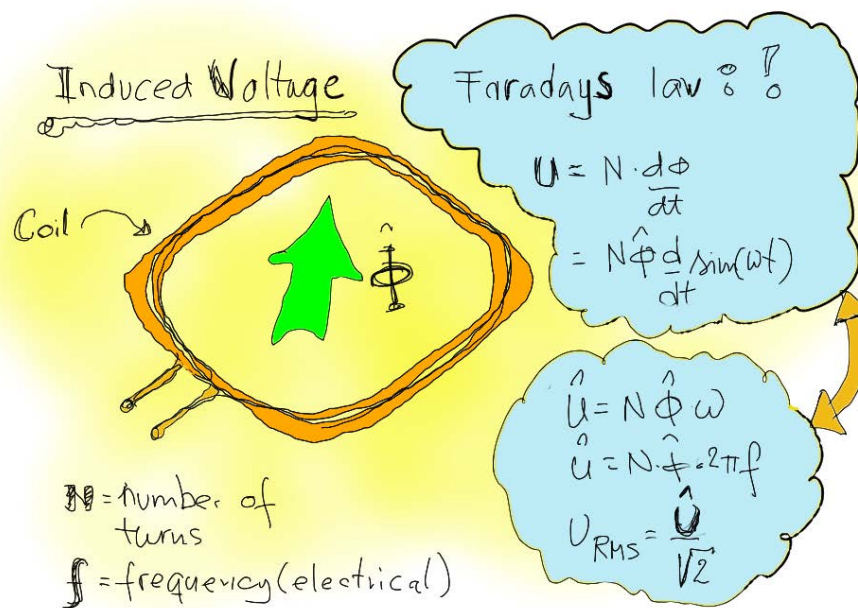 Induced Voltage
Coil
Φ̂
N = number of
turns
f = frequency (electrical)
Faradays law : !
U = N · dΦ/dt
= N Φ̂ d/dt sin(ωt)
Û = N Φ̂ ω
û = N · Φ̂ · 2πf
U_RMS = Û/√2